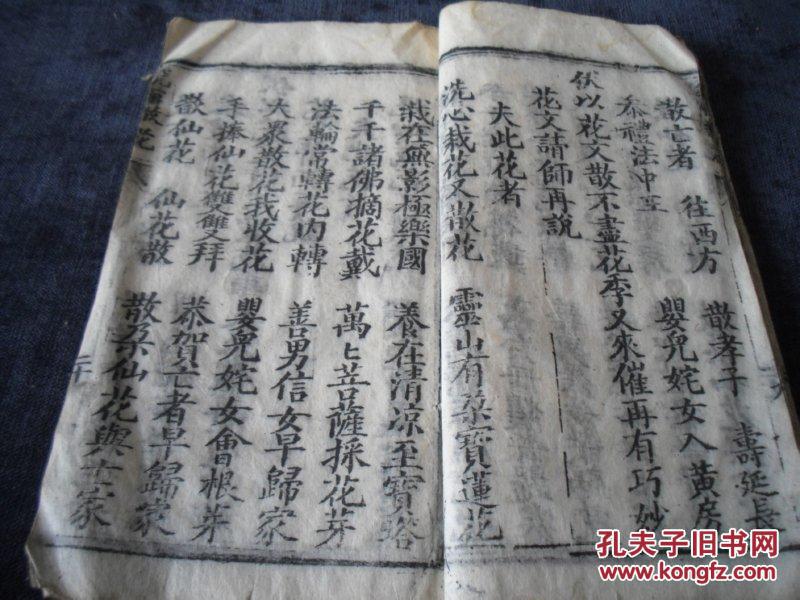 散孝子 壽延長
散亡者 往西方 嬰兒姹女入黃房
皈禮法中王
伏以花文散不盡花季又來催再有巧妙
花文請師再說
夫此花者
洗心栽花又散花 靈山有朶寶蓮花
栽在無影極樂國 養在清凉至寶塔
千千諸佛摘花戴 萬〻菩薩採花芽
法輪常轉花內轉 善男信女早歸家
大衆散花我收花 嬰兒姹女會根芽
手捧仙花雙雙拜 恭賀亡者早歸家
散仙花 仙花散 散朶仙花與士家
散花
孔夫子旧书网
www.kongfz.com